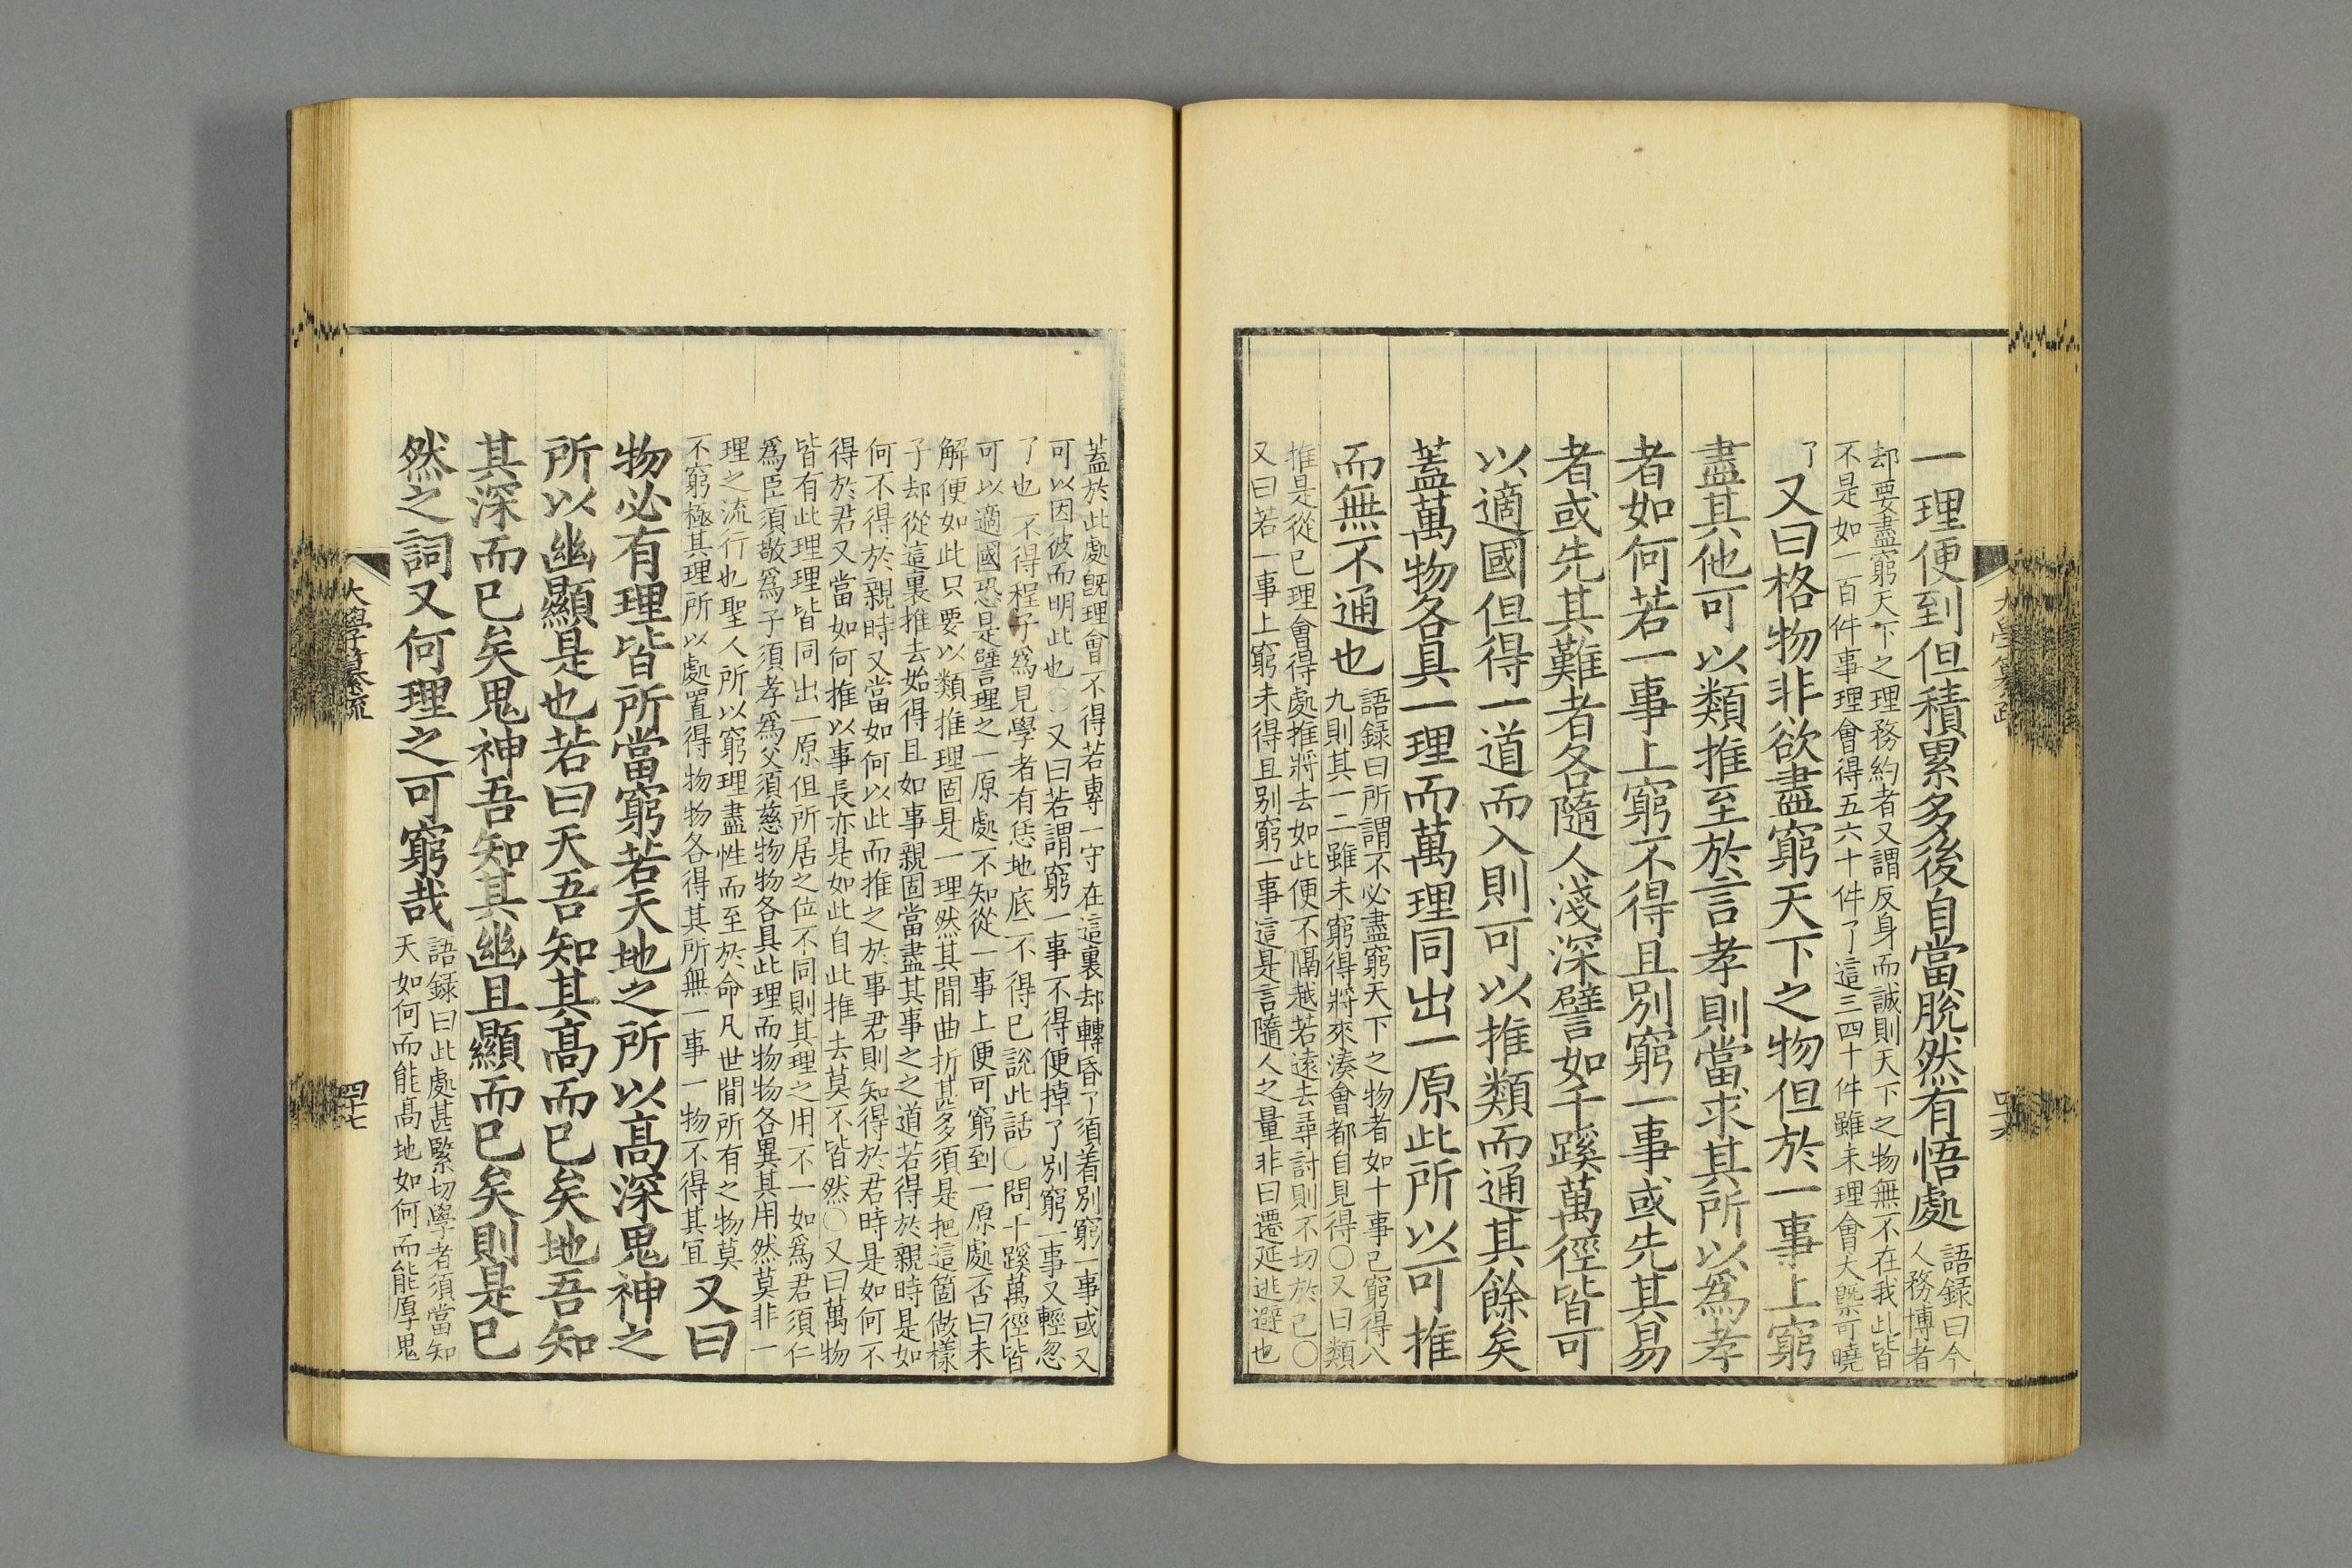 一理便到但積累多後自當脫然有悟處
語録曰今
人務博者
却要盡窮天下之理務約者又謂反身而誠則天下之物無不在我此皆
不是如一百件事理會得五六十件了這三四十件雖未理會大槩可曉
了
又曰格物非欲盡窮天下之物但於一事上窮
盡其他可以類推至於言孝則當求其所以爲孝
者如何若一事上窮不得且別窮一事或先其易
者或先其難者各隨人淺深譬如千蹊萬徑皆可
以適國但得一道而入則可以推類而通其餘矣
蓋萬物各具一理而萬理同出一原此所以可推
而無不通也
語録曰所謂不必盡窮天下之物者如十事已窮得八
九則其一二雖未窮得將來湊會都自見得○又曰類
推是從已理會得處推將去如此便不隔越若遠去尋討則不切於己○
又曰若一事上窮未得且別窮一事這是言隨人之量非曰遷延逃避也
大學纂疏
四十六
蓋於此處旣理會不得若專一守在這裏却轉昏了須着別窮一事或又
可以因彼而明此也○又曰若謂窮一事不得便掉了別窮一事又輕忽
了也不得程子爲見學者有恁地底不得已說此話○問千蹊萬徑皆
可以適國恐是譬理之一原處不知從一事上便可窮到一原處否曰未
解便如此只要以類推理固是一理然其間曲折甚多須是把這箇做樣
子却從這裏推去始得且如事親固當盡其事之之道若得於親時是如
何不得於親時又當如何以此而推之於事君則知得於君時是如何不
得於君又當如何推以事長亦是如此自此推去莫不皆然○又曰萬物
皆有此理理皆同出一原但所居之位不同則其理之用不一如爲君須仁
爲臣須敬爲子須孝爲父須慈物物各具此理而物物各異其用然莫非一
理之流行也聖人所以窮理盡性而至於命凡世間所有之物莫
不窮極其理所以處置得物物各得其所無一事一物不得其宜
又曰
物必有理皆所當窮若天地之所以髙深鬼神之
所以幽顯是也若曰天吾知其髙而已矣地吾知
其深而已矣鬼神吾知其幽且顯而已矣則是已
然之詞又何理之可窮哉
語録曰此處甚緊切學者須當知
天如何而能髙地如何而能厚鬼
大學纂疏
四十七